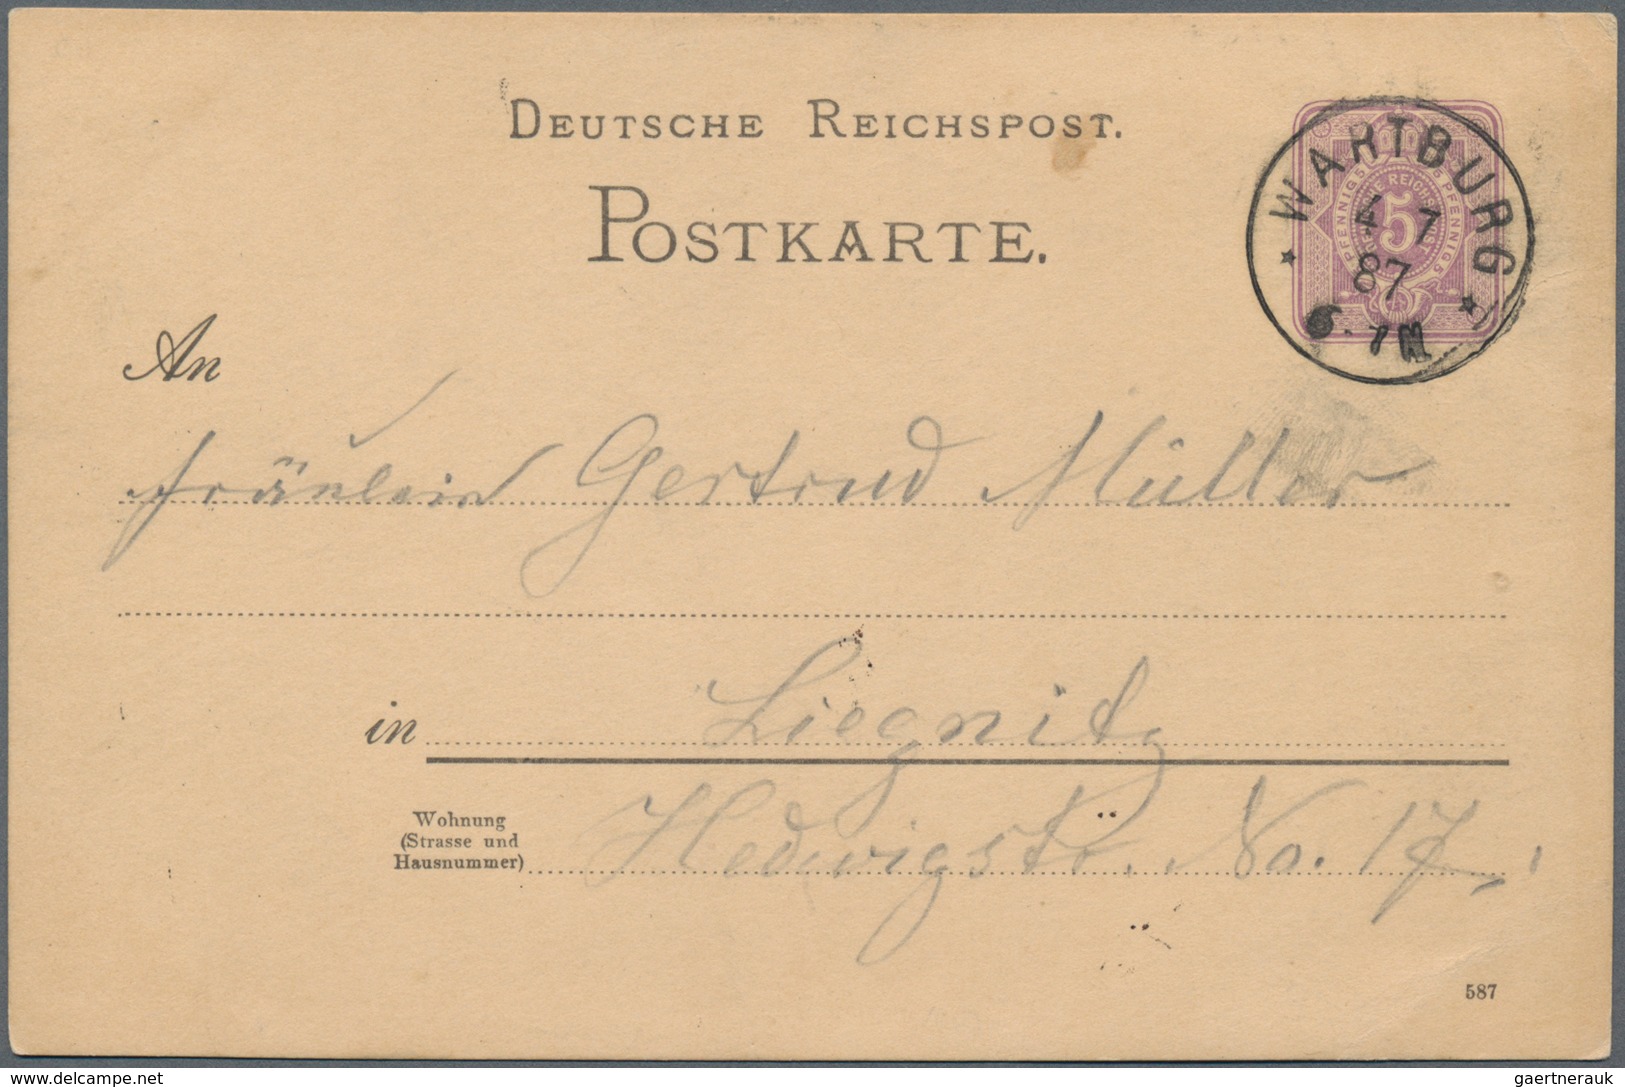 DEUTSCHE REICHSPOST.
POSTKARTE.
WARTBURG
4 7
87
6-7 N
PFENNIG 5 PFENNIG 5
5
An
Fräulein Gertrud Müller
in Liegnitz
Wohnung
(Strasse und
Hausnummer) Hedwigstr. No. 17,
587
www.delcampe.net
gaertnerauk